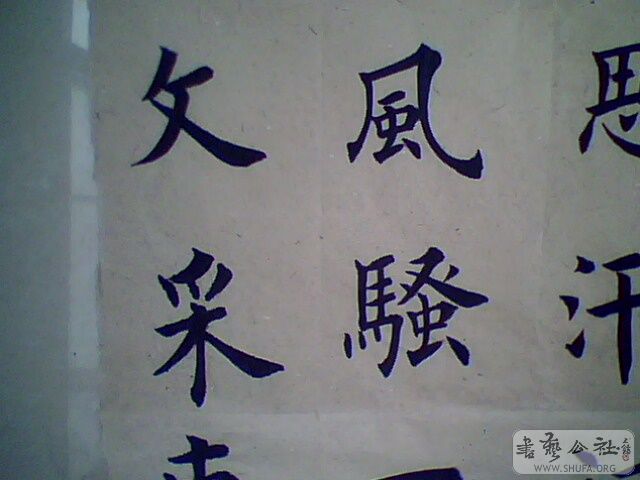 文采
風騷
思汗
書藝公社
WWW.SHUFA.ORG